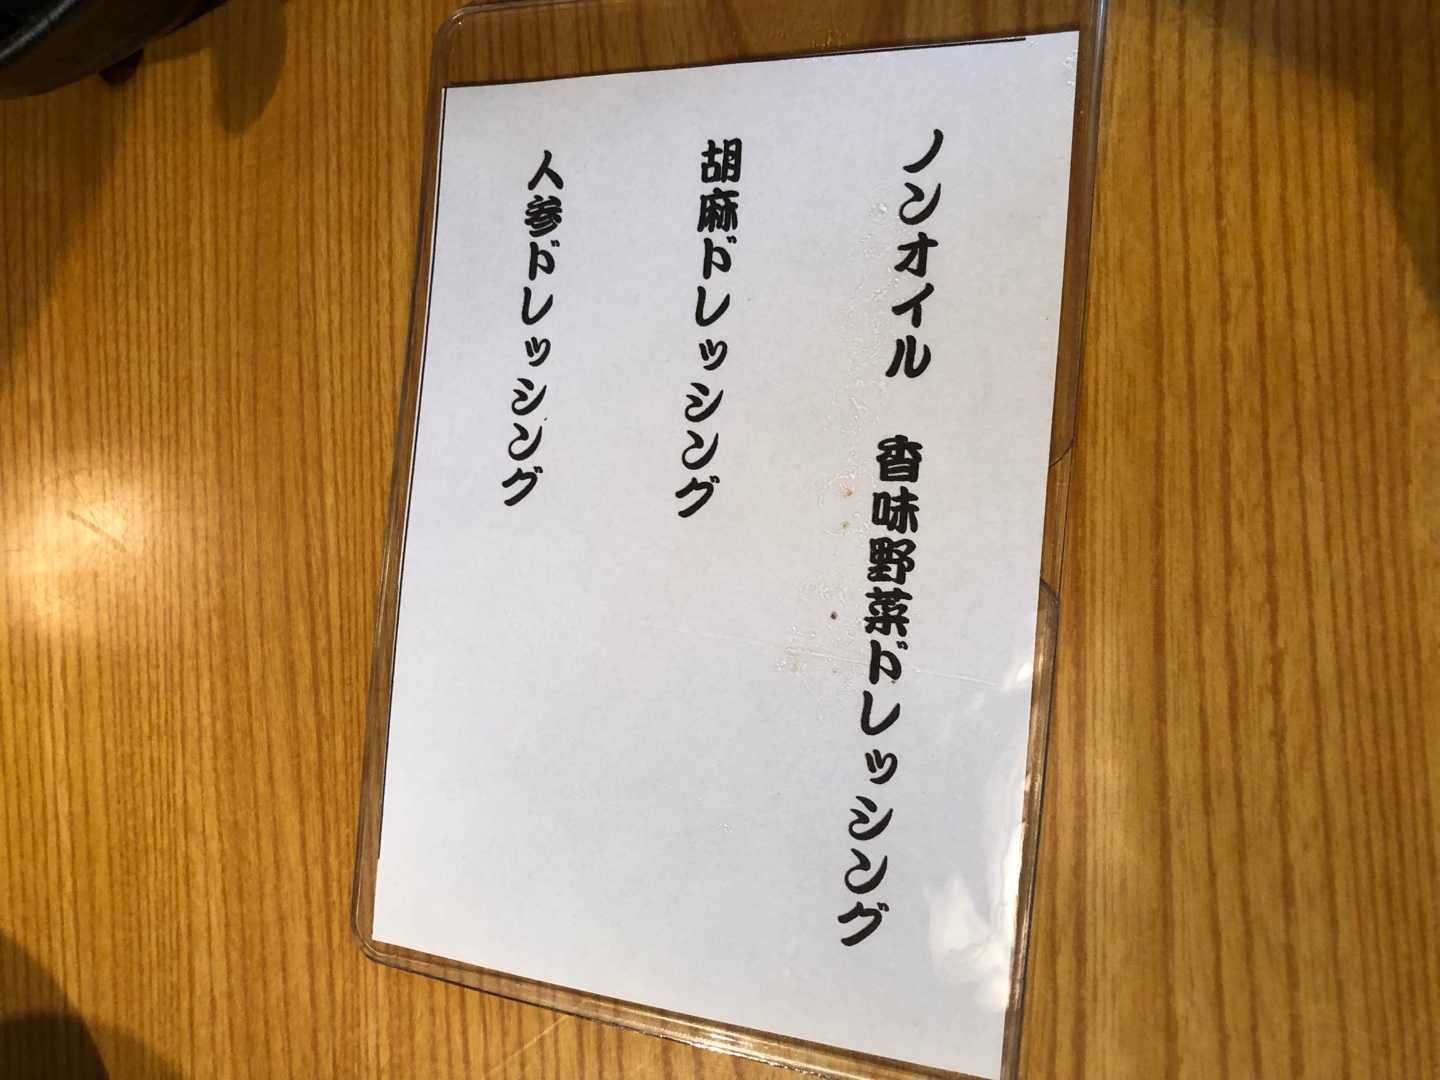 ノンオイル　香味野菜ドレッシング
胡麻ドレッシング
人参ドレッシング